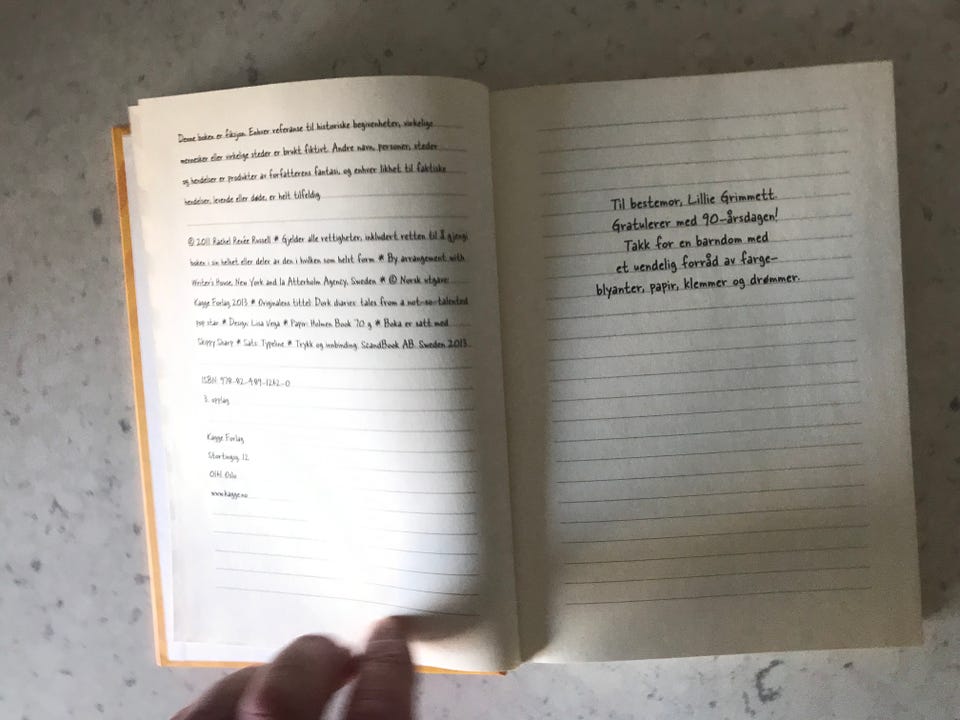 Denne boken er fiksjon. Enhver referanse til historiske begivenheter, virkelige
mennesker eller virkelige steder er brukt fiktivt. Andre navn, personer, steder
og hendelser er produkter av forfatterens fantasi, og enhver likhet til faktiske
hendelser, levende eller døde, er helt tilfeldig.
© 2011 Rachel Renée Russell * Gjelder alle rettigheter, inkludert retten til å gjengi
boken i sin helhet eller deler av den i hvilken som helst form * By arrangement with
Writer's House, New York and Ia Atterholm Agency, Sweden * © Norsk utgave:
Kagge Forlag 2013 * Originalens tittel: Dork diaries: tales from a not-so-talented
pop star * Design: Lisa Vega * Papir: Holmen Book 70 g * Boka er satt med
Skippy Sharp * Sats: Typeline * Trykk og innbinding: ScandBook AB, Sweden 2013
ISBN: 978-82-489-1262-0
3. opplag
Kagge Forlag
Stortingsg. 12
0161 Oslo
www.kagge.no
Til bestemor, Lillie Grimmett.
Gratulerer med 90-årsdagen!
Takk for en barndom med
et uendelig forråd av farge-
blyanter, papir, klemmer og drømmer.